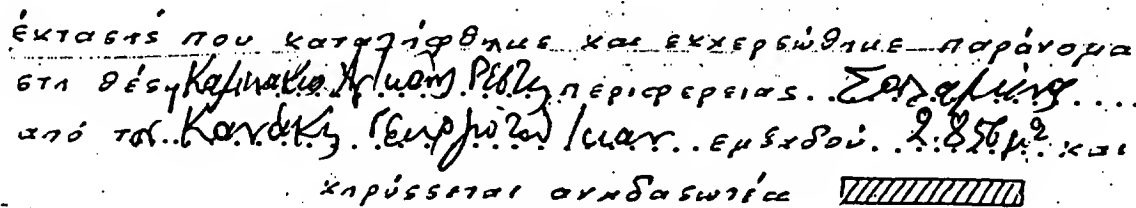 έκτασης που καταλήφθηκε και εκχερσώθηκε παράνομα
στη θέση Καμινάκια περιφερειας Σαλαμίνας
από τον Κανάκη Γεωργ. του Ιωαν. εμβαδού 2.856μ² και
κηρύσσεται αναδασωτέα